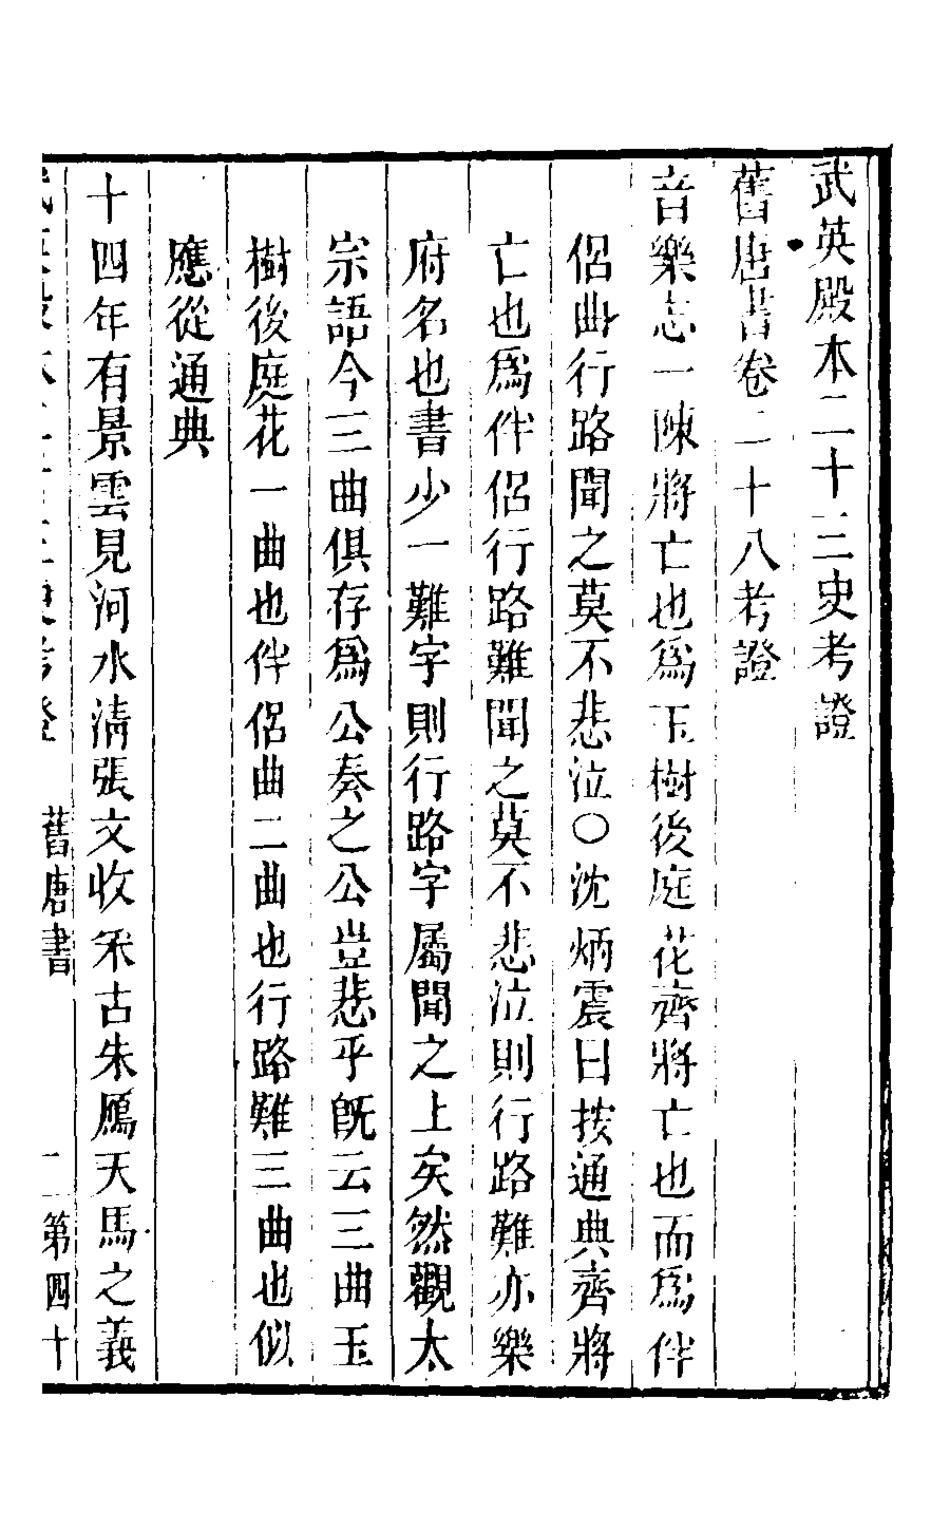 武英殿本二十三史考證
舊唐書卷二十八考證
音樂志一陳將亡也為玉樹後庭花齊將亡也而為伴
侶曲行路聞之莫不悲泣○沈炳震曰按通典齊將
亡也為伴侶行路難聞之莫不悲泣則行路難亦樂
府名也書少一難字則行路字屬聞之上矣然觀太
宗語今三曲俱存為公奏之公豈悲乎旣云三曲玉
樹後庭花一曲也伴侶曲二曲也行路難三曲也似
應從通典
十四年有景雲見河水清張文收采古朱鴈天馬之義
舊唐書 二 第四十